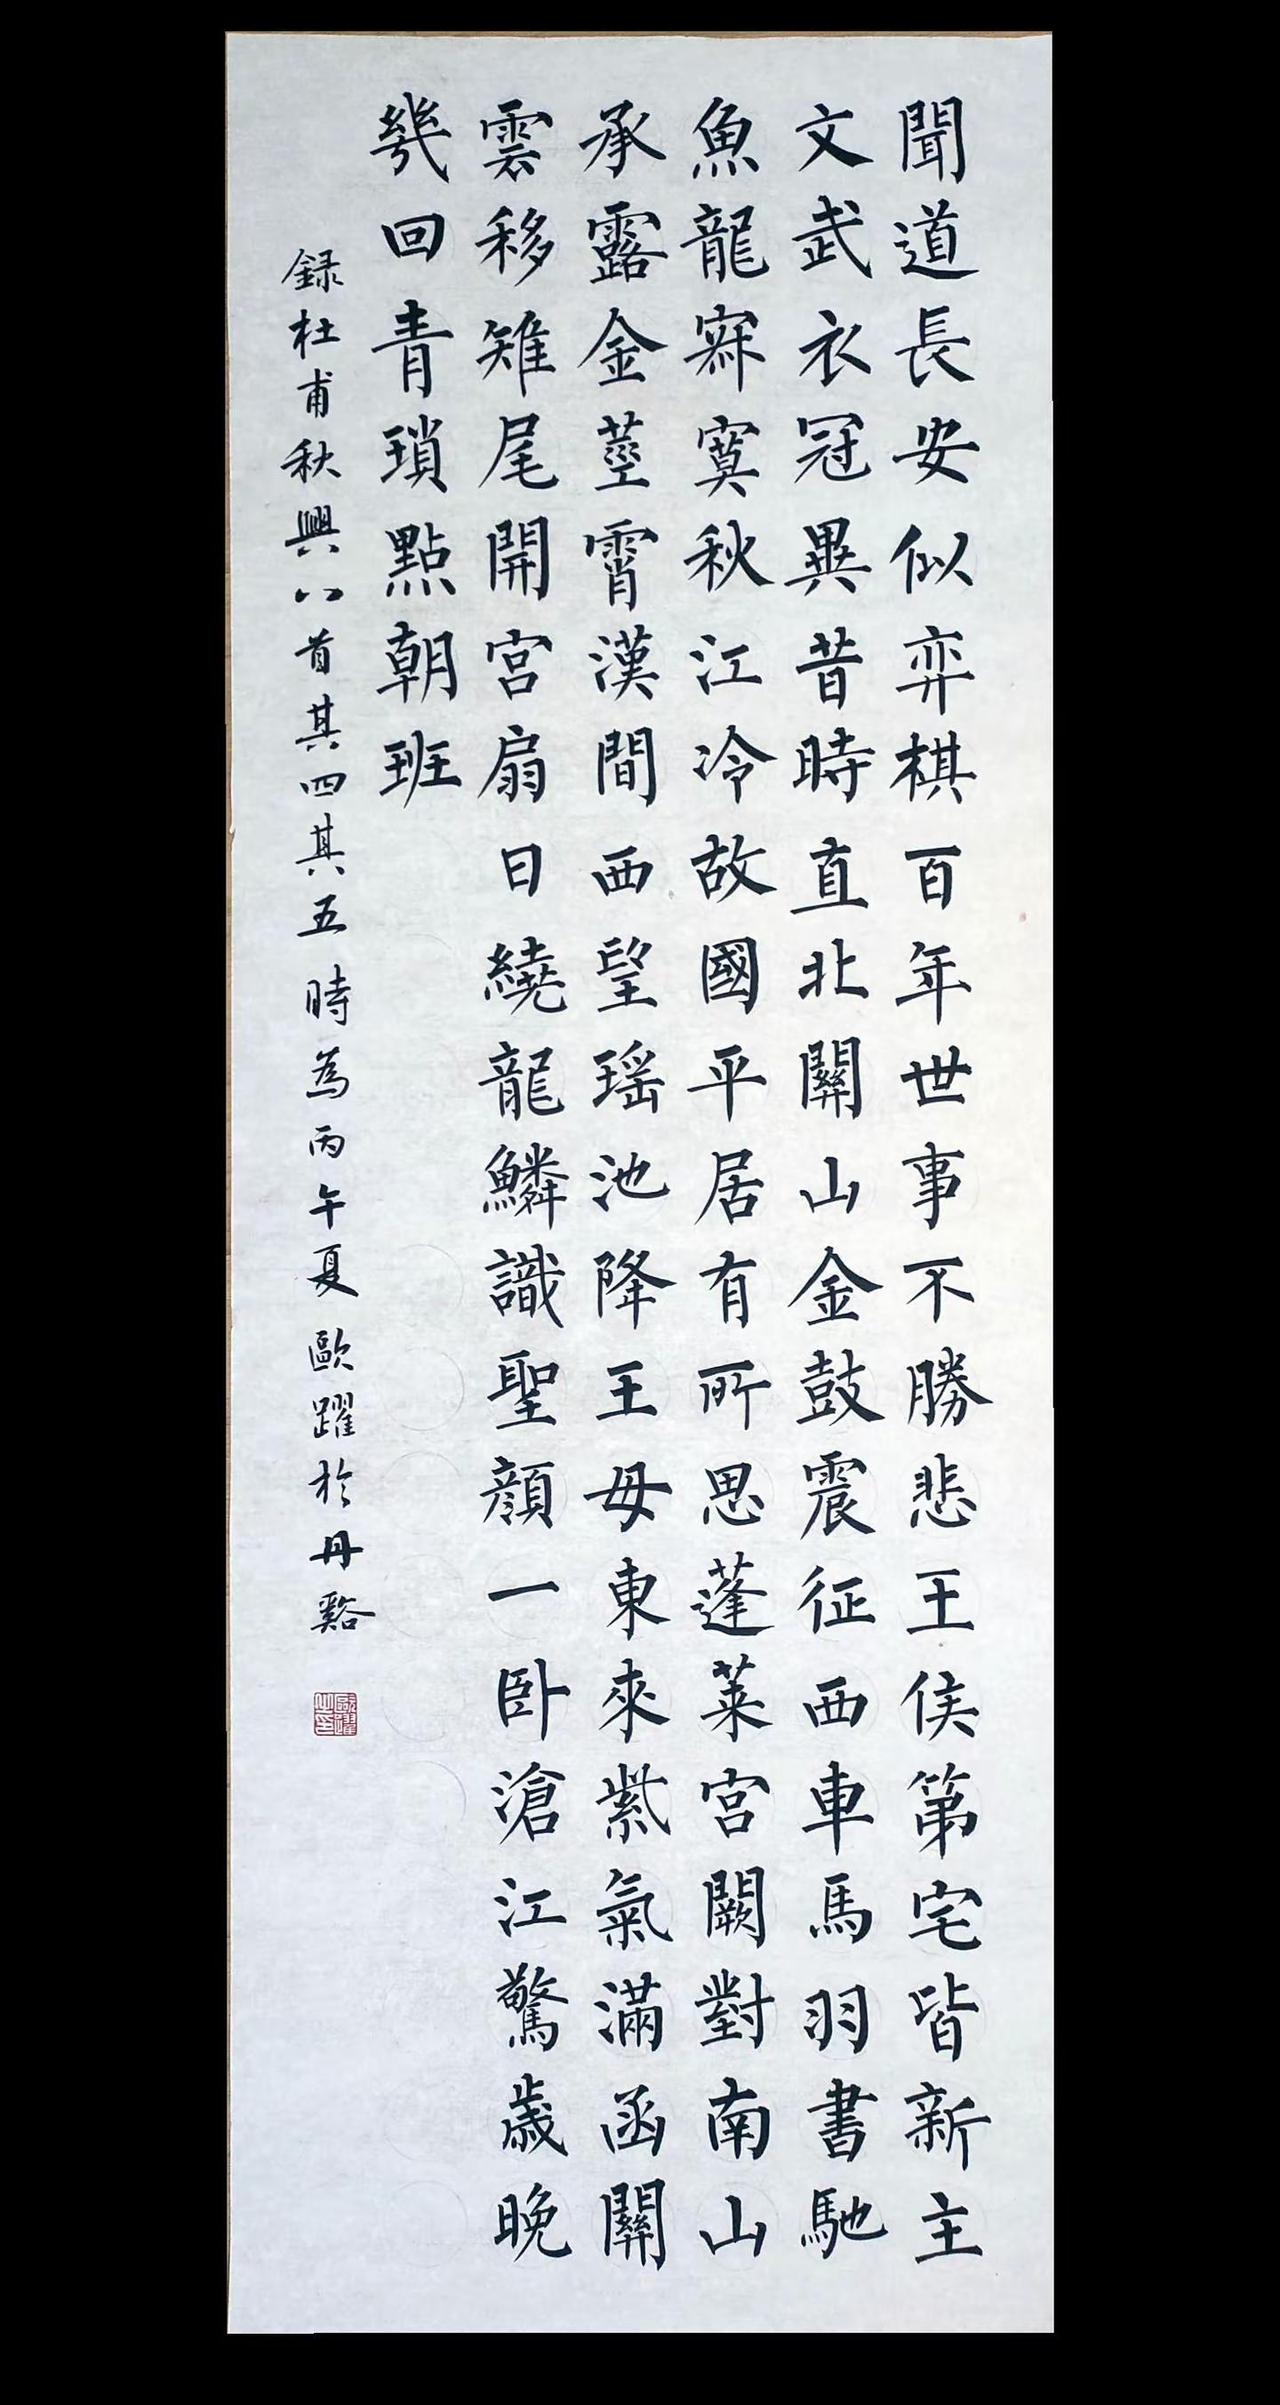 聞道長安似弈棋百年世事不勝悲王侯第宅皆新主
文武衣冠異昔時直北關山金鼓震征西車馬羽書馳
魚龍寂寞秋江冷故國平居有所思蓬萊宮闕對南山
承露金莖霄漢間西望瑶池降王母東來紫氣滿函關
雲移雉尾開宮扇日繞龍鱗識聖顔一卧滄江驚歲晚
幾回青瑣點朝班
録杜甫秋興八首其四其五時為丙午夏歐躍於丹谿
歐躍之印